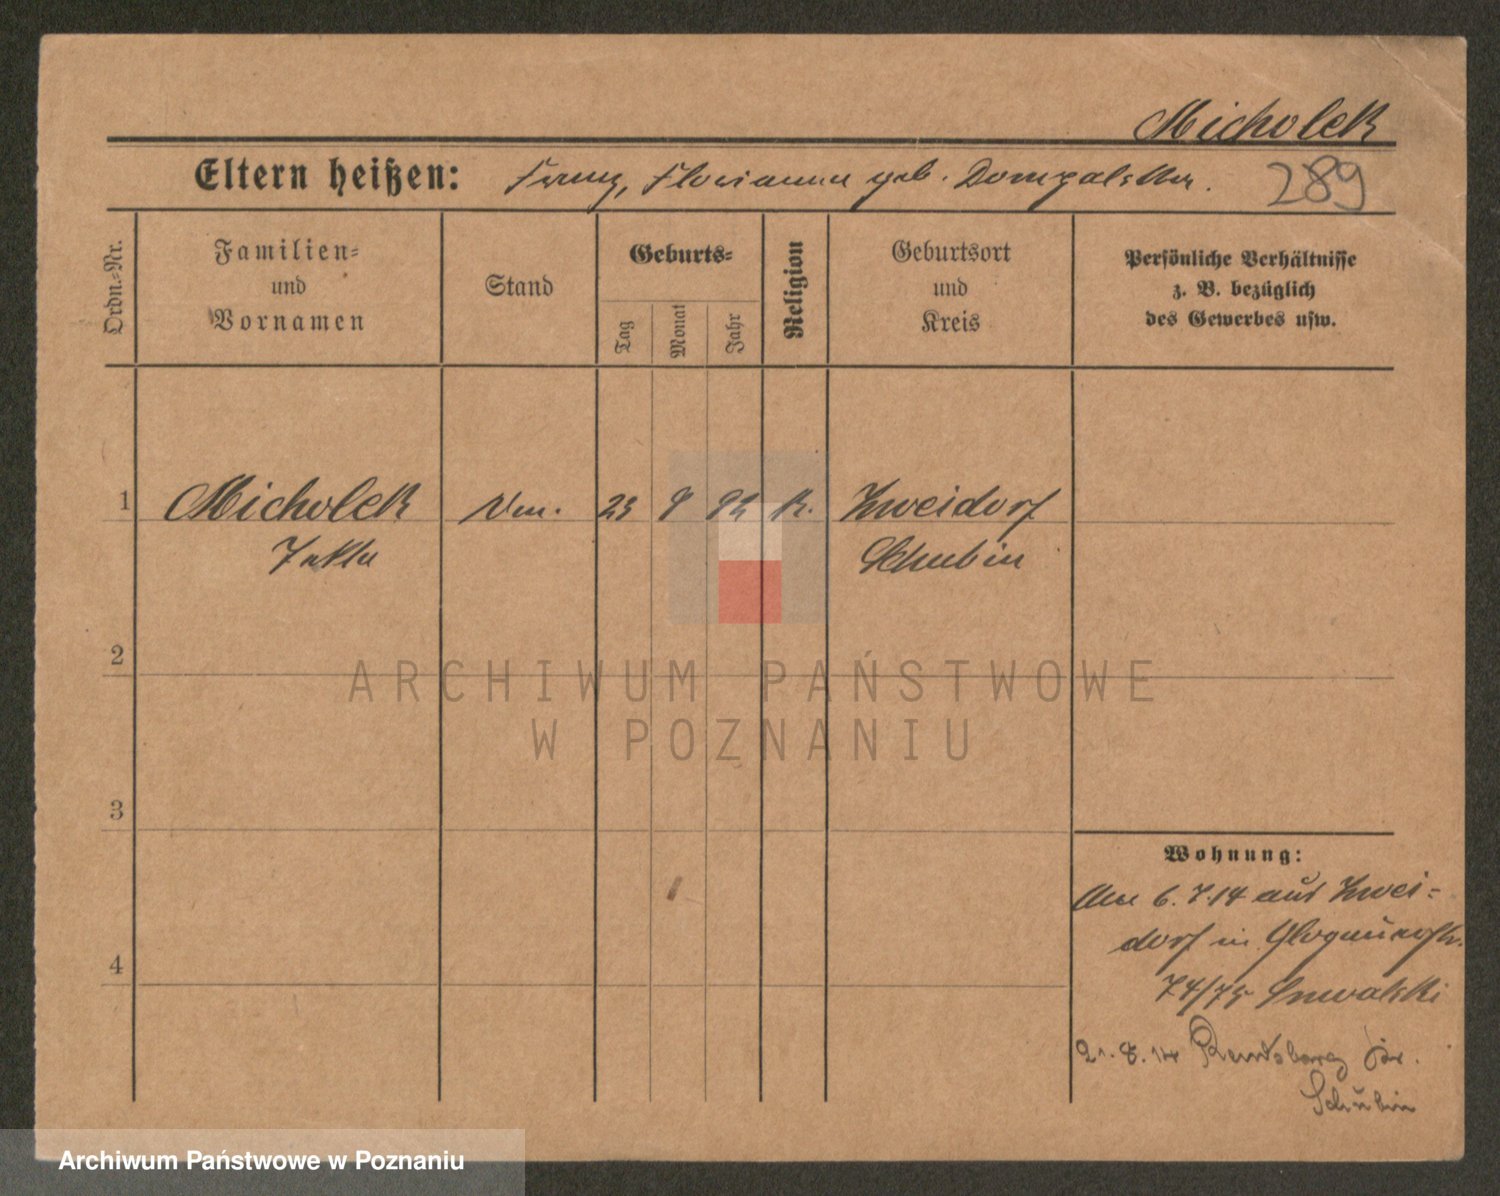 Micholek
Eltern heißen: Franz, Florianna geb. Domzalska.
289
Ordn.-Nr.
Familien-
und
Vornamen
Stand
Geburts-
Tag
Monat
Jahr
Religion
Geburtsort
und
Kreis
Persönliche Verhältnisse
z. B. bezüglich
des Gewerbes usw.
1
Micholek
23 9 92 k. Zweidorf
Thekla
Schubin
2
ARCHIWUM PAŃSTWOWE
W POZNANIU
3
Wohnung:
6.7.14 aus Zwei-
dorf in Glogauerstr.
74/75 Suwalski
4
21.8.14 Kr.
Schubin
Archiwum Państwowe w Poznaniu